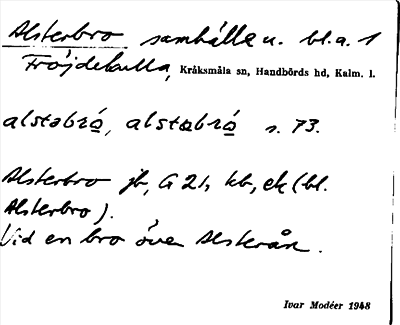 Alsterbro samhälle u. bl.a. 1
Fröjdekulla, Kråksmåla sn, Handbörds hd, Kalm. l.
alstəbro̲, alstəbrå̲ s. 73.
Alsterbro jb, G 21, kb, ek (bl.
Alsterbro).
Vid en bro över Alsterån.
Ivar Modéer 1948